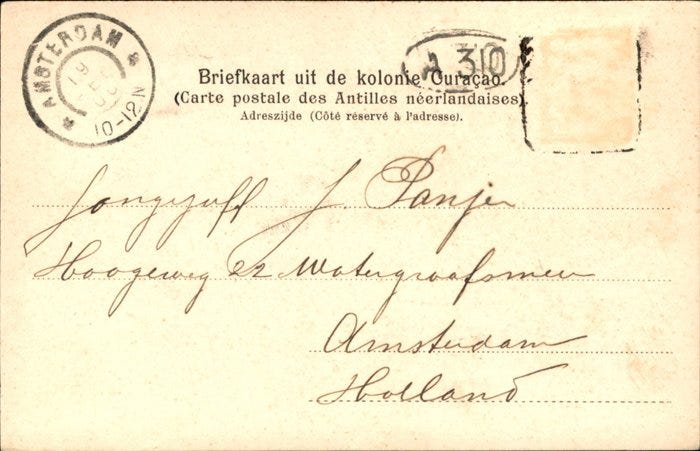 AMSTERDAM
10-12N
A 30
Briefkaart uit de kolonie Curaçao.
(Carte postale des Antilles néerlandaises).
Adreszijde (Côté réservé à l'adresse).
J. Panjer
Hoogeweg 22 Watergraafsmeer
Amsterdam
Holland